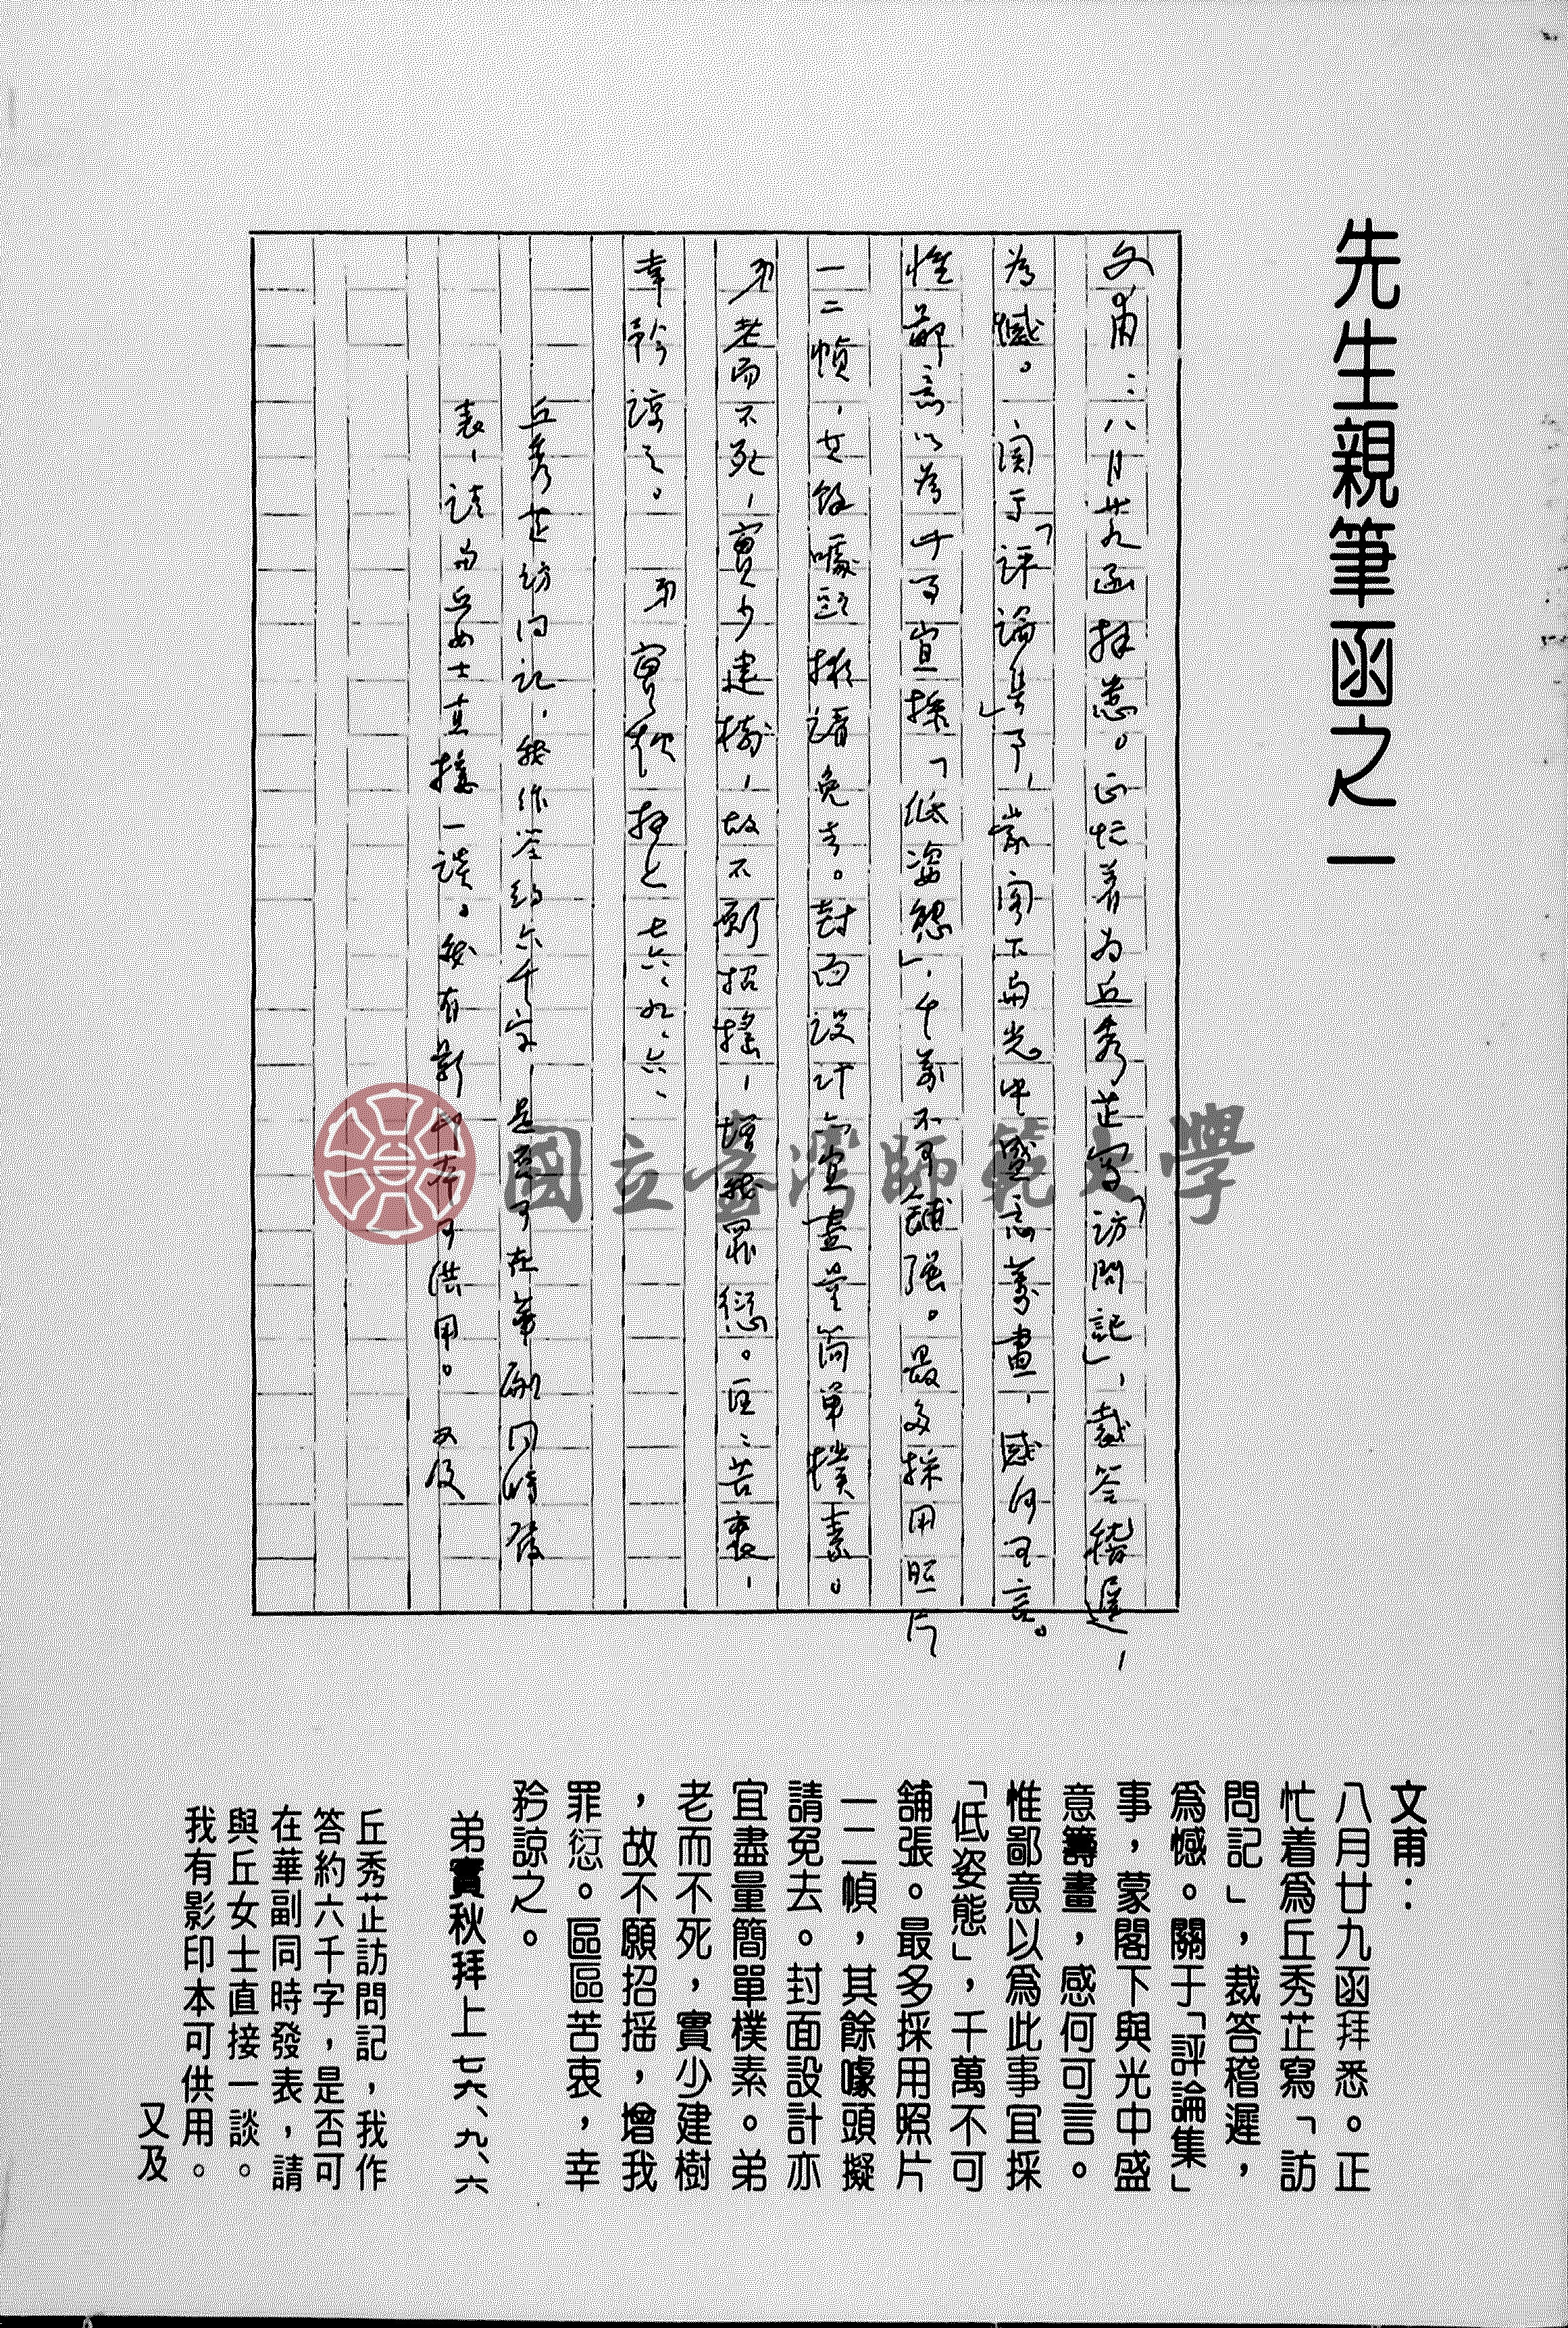 先生親筆函之一
文甫：八月廿九函拜悉。正忙着为丘秀芷寫「訪問記」，裁答稽遲，
為憾。關于「評論集」事，蒙閣下與光中盛意籌畫，感何可言。
惟鄙意以為此事宜採「低姿態」，千萬不可舖張。最多採用照片
一二幀，其餘噱頭擬請免去。封面設計亦宜盡量簡單樸素。
弟老而不死，實少建樹，故不願招搖，增我罪愆。區區苦衷，
幸矜諒之。弟實秋拜上七六、九、六、
丘秀芷訪问記，我作答約六千字，是否可在華副同時發
表，請與丘女士直接一談。我有影印本可供用。又及
國立臺灣師範大學
文甫：
八月廿九函拜悉。正
忙着爲丘秀芷寫「訪
問記」，裁答稽遲，
爲憾。關于「評論集」
事，蒙閣下與光中盛
意籌畫，感何可言。
惟鄙意以爲此事宜採
「低姿態」，千萬不可
舖張。最多採用照片
一二幀，其餘噱頭擬
請免去。封面設計亦
宜盡量簡單樸素。弟
老而不死，實少建樹
，故不願招搖，增我
罪愆。區區苦衷，幸
矜諒之。
弟實秋拜上 七六、九、六
丘秀芷訪問記，我作
答約六千字，是否可
在華副同時發表，請
與丘女士直接一談。
我有影印本可供用。
又及